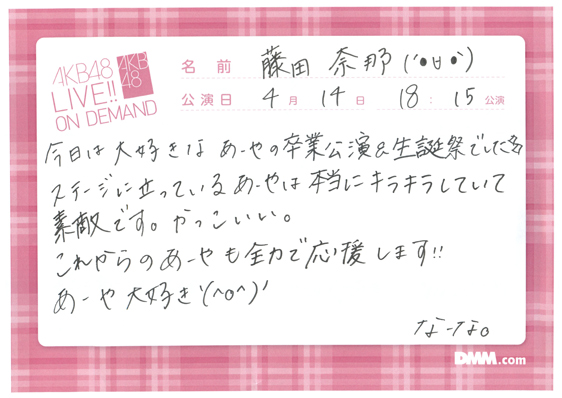 AKB48
LIVE!!
ON DEMAND
AKB
48
名前 藤田 奈那 ('●'∀'●')
公演日 4月 14日 18:15公演
今日は大好きな あーやの卒業公演&生誕祭でした
ステージに立っているあーやは本当にキラキラしていて
素敵です。かっこいい。
これからのあーやも全力で応援します!!
あーや大好き'(^o^)'
なーな。
DMM.com